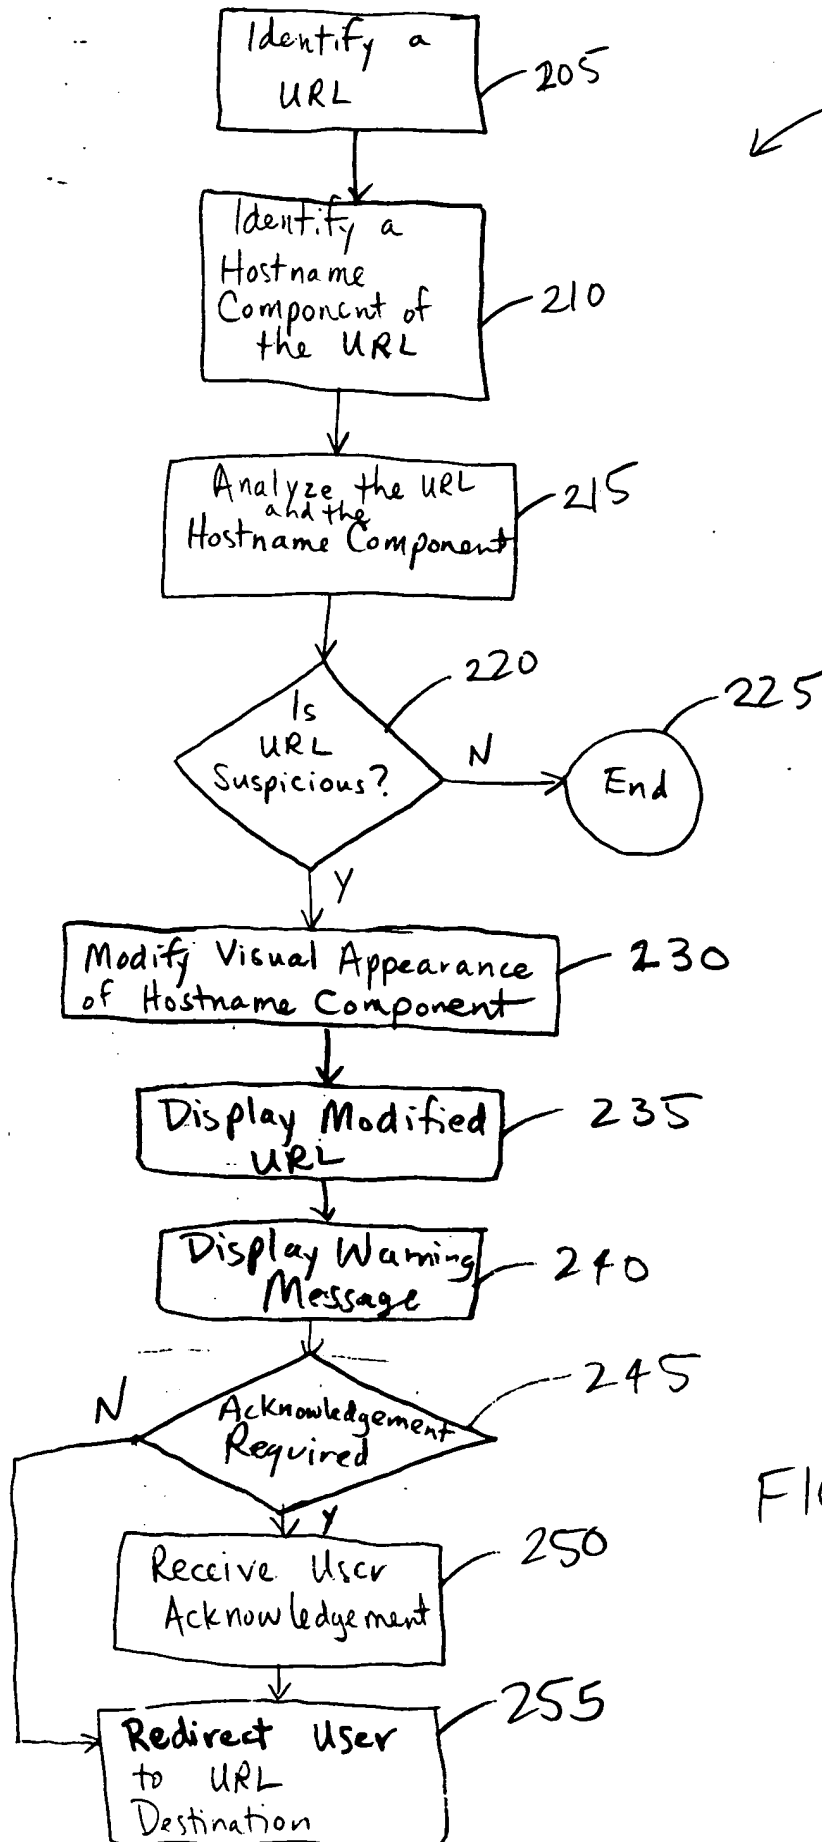 Identify a
URL
205
Identify a
Hostname
Component of
the URL
210
Analyze the URL
and the
Hostname Component
215
220
Is
URL
Suspicious?
N
225
End
Y
Modify Visual Appearance
of Hostname Component
230
Display Modified
URL
235
Display Warning
Message
240
N
Acknowledgement
Required
245
Y
Receive User
Acknowledgement
250
Redirect User
to URL
Destination
255